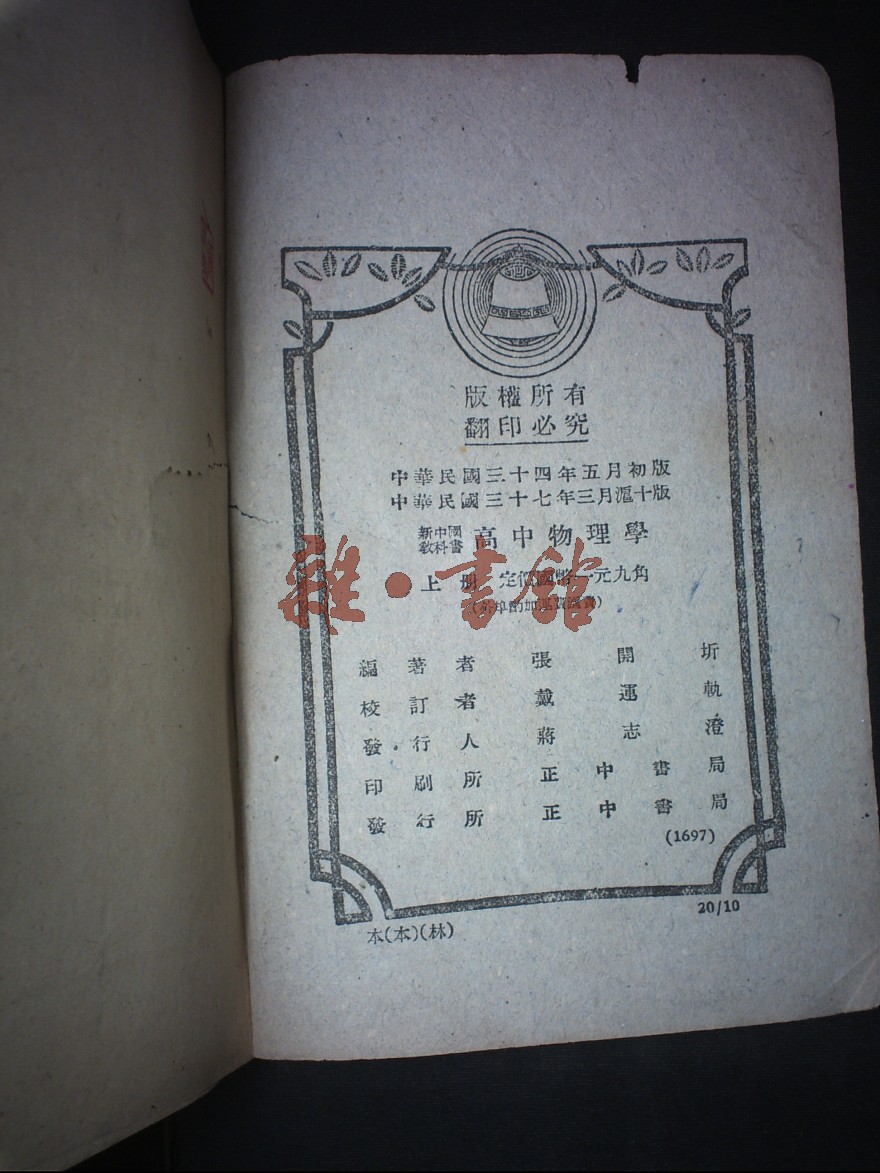 版權所有
翻印必究
中華民國三十四年五月初版
中華民國三十七年三月滬十版
新中國
教科書 高中物理學
上册 定價國幣一元九角
雜·書館
編著者 張開圻
校訂者 戴運軌
發行人 蔣志澄
印刷所 正中書局
發行所 正中書局
(1697)
20/10
本(本)(林)